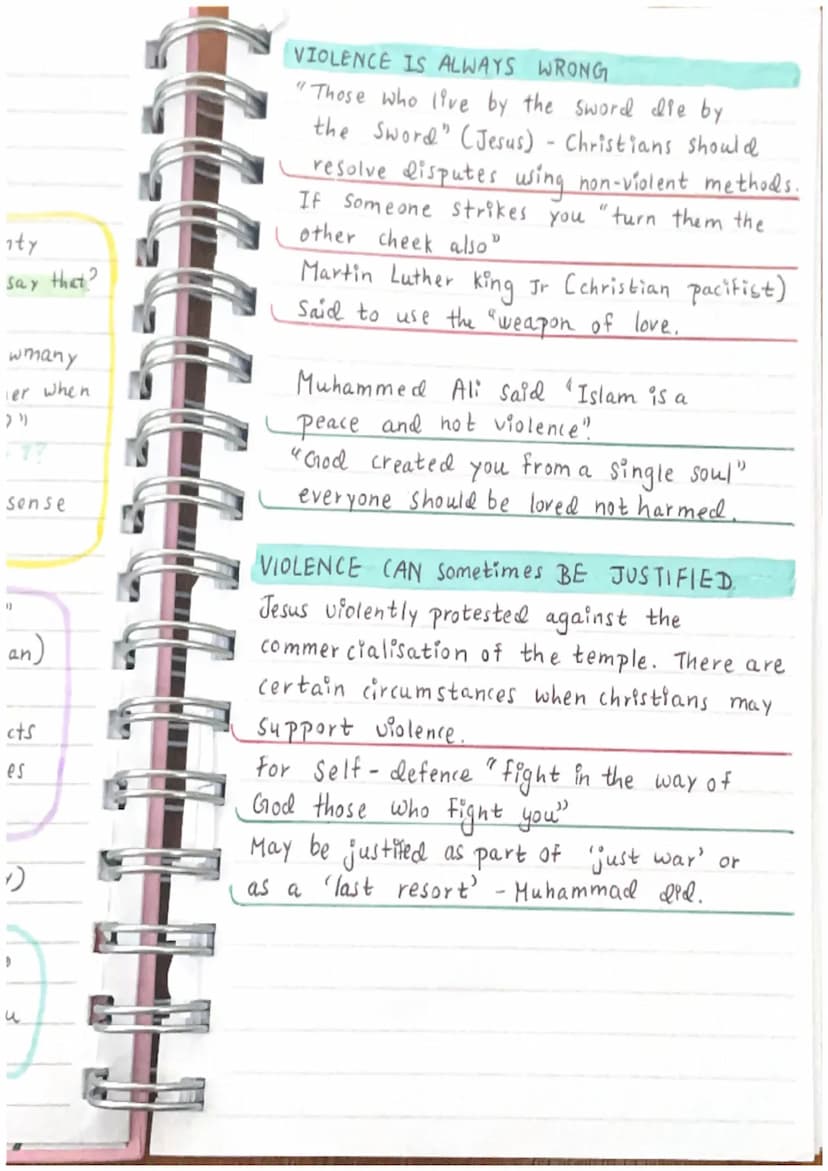 nty
say that?
wmany
er when
??
sense
an)
cts
es
u
VIOLENCE IS ALWAYS WRONG
"Those who live by the sword die by
the sword" (Jesus) - Christians should
resolve disputes using non-violent methods.
If someone strikes you "turn them the
other cheek also"
Martin Luther King Jr (christian pacifist)
said to use the "weapon of love.
Muhammed Ali said 'Islam is a
peace and not violence".
"God created you from a single soul"
everyone should be loved not harmed.
VIOLENCE CAN sometimes BE JUSTIFIED
Jesus violently protested against the
commercialisation of the temple. There are
certain circumstances when christians may
support violence.
For self-defence "fight in the way of
God those who fight you"
May be justified as part of 'just war' or
as a 'last resort' - Muhammad did.